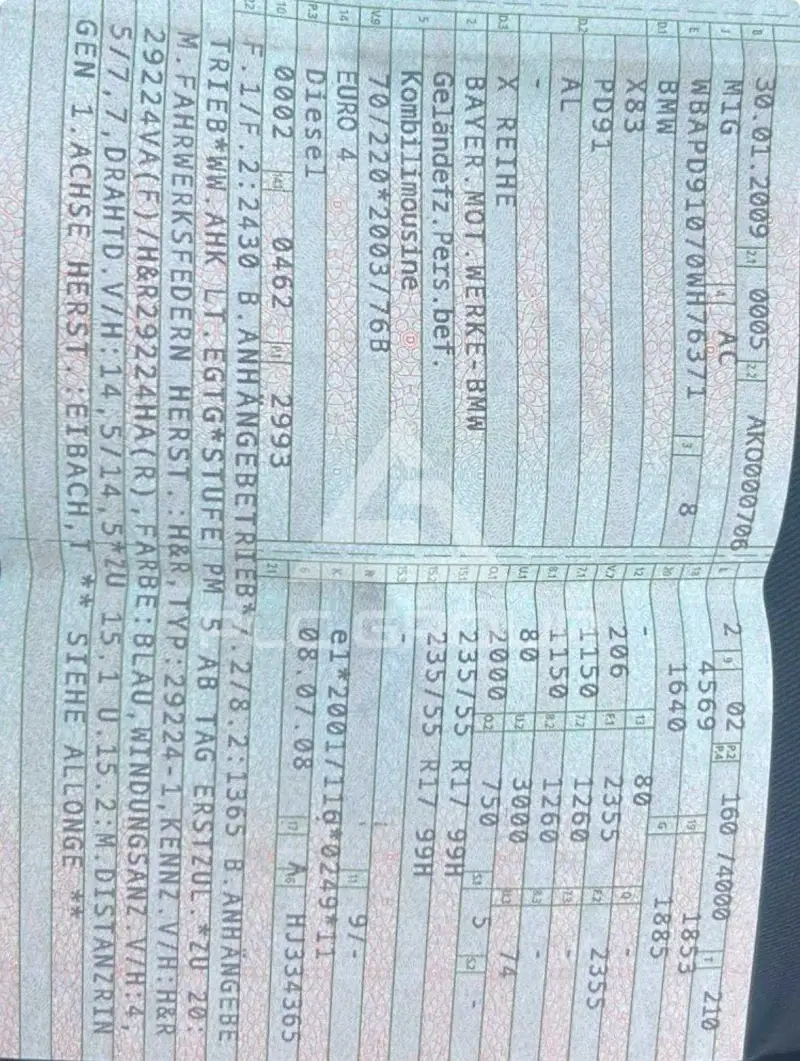 B 30.01.2009 2.1 0005 2.2 AKO000706
J M1G 4 AC
E WBAPD91070WH76371 3 8
D.1 BMW
X83
D.2 PD91
AL
-
D.3 X REIHE
2 BAYER.MOT.WERKE-BMW
5 Geländefz.Pers.bef.
Kombilimousine
V.9 70/220*2003/76B
14 EURO 4
P.3 Diesel
10 0002 14.1 0462 P.1 2993
L 2 9 02 P.2 P.4 160 /4000 T 210
18 4569 19 1853
20 1640 G 1885
12 - 13 80 Q -
V.7 206 F.1 2355 F.2 2355
7.1 1150 7.2 1260 7.3 -
8.1 1150 8.2 1260 8.3 -
U.1 80 U.2 3000 U.3 74
O.1 2000 O.2 750 S.1 5 S.2 -
15.1 235/55 R17 99H
15.2 235/55 R17 99H
15.3 -
R 11 9/-
K e1*2001/116*0249*11
6 08.07.08 17 A 16 HJ334365
21
22 F.1/F.2:2430 B.ANHÄNGEBETRIEB*7.2/8.2:1365 B.ANHÄNGEBE
TRIEB*WW.AHK LT.EGTG*STUFE PM 5 AB TAG ERSTZUL.*ZU 20:
M.FAHRWERKSFEDERN HERST.:H&R,TYP:29224-1,KENNZ.V/H:H&R
29224VA(F)/H&R29224HA(R),FARBE:BLAU,WINDUNGSANZ.V/H:4,
5/7,7,DRAHTD.V/H:14,5/14,5*ZU 15.1 U.15.2:M.DISTANZRIN
GEN 1.ACHSE HERST.:EIBACH,T ** SIEHE ALLONGE **